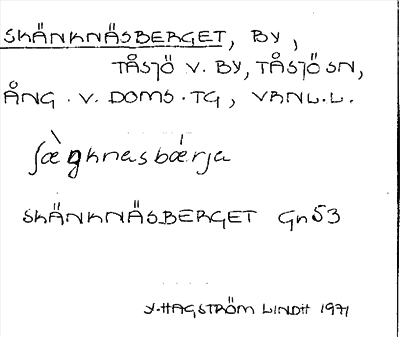 SKÄNKNÄSBERGET, BY,
TÅSJÖ V. BY, TÅSJÖ SN,
ÅNG. V. DOMS. TG, VRNL.L.
ʃæ̀ŋknasbǽrja
SKÄNKNÄSBERGET Gn53
Y. HAGSTRÖM LINDH 1971